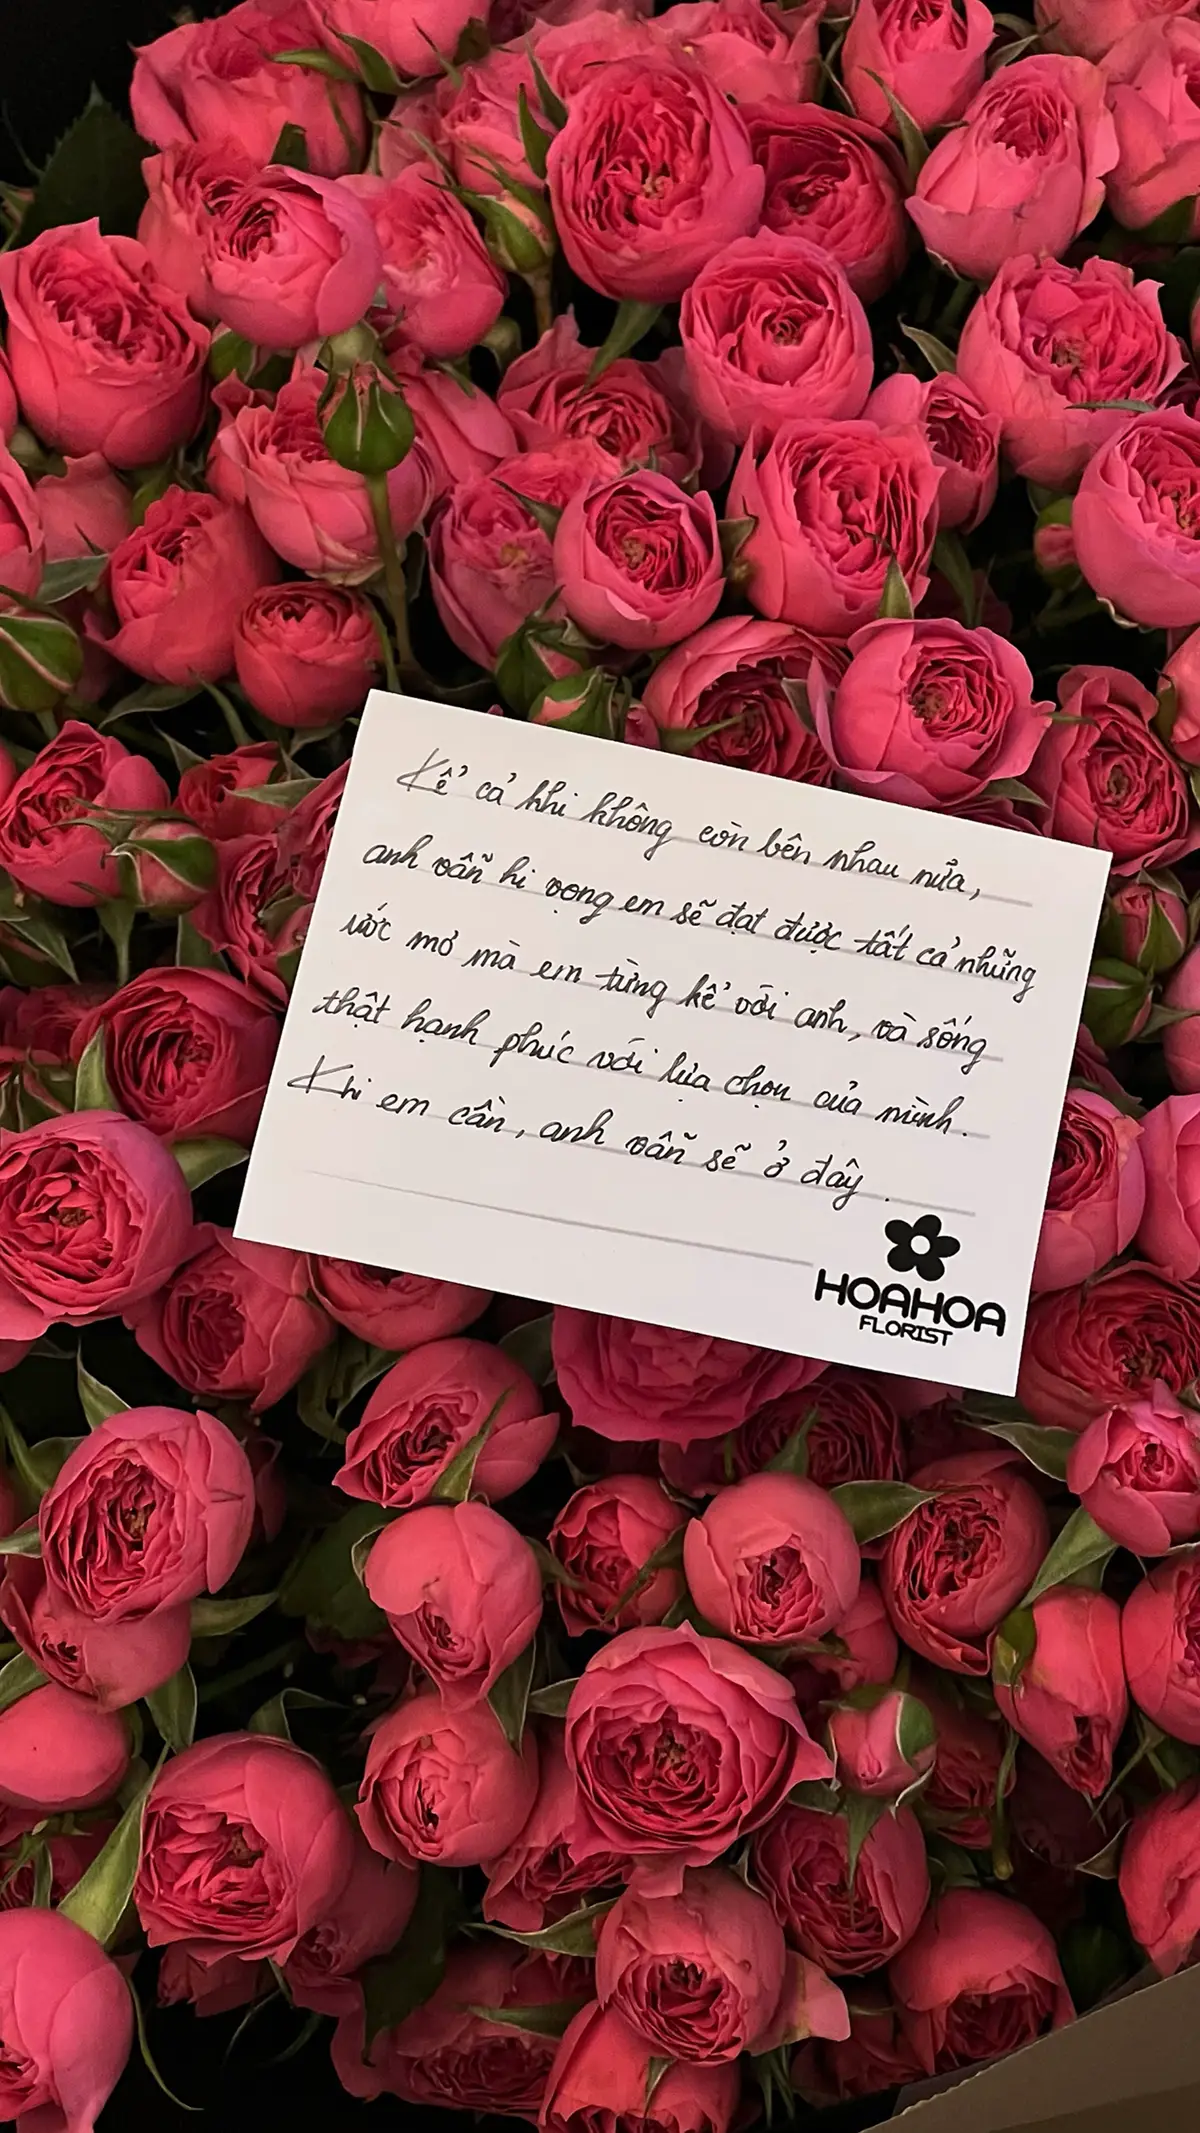 Kể cả khi không còn bên nhau nữa,
anh vẫn hi vọng em sẽ đạt được tất cả những
ước mơ mà em từng kể với anh, và sống
thật hạnh phúc với lựa chọn của mình.
Khi em cần, anh vẫn sẽ ở đây.
HOAHOA
FLORIST